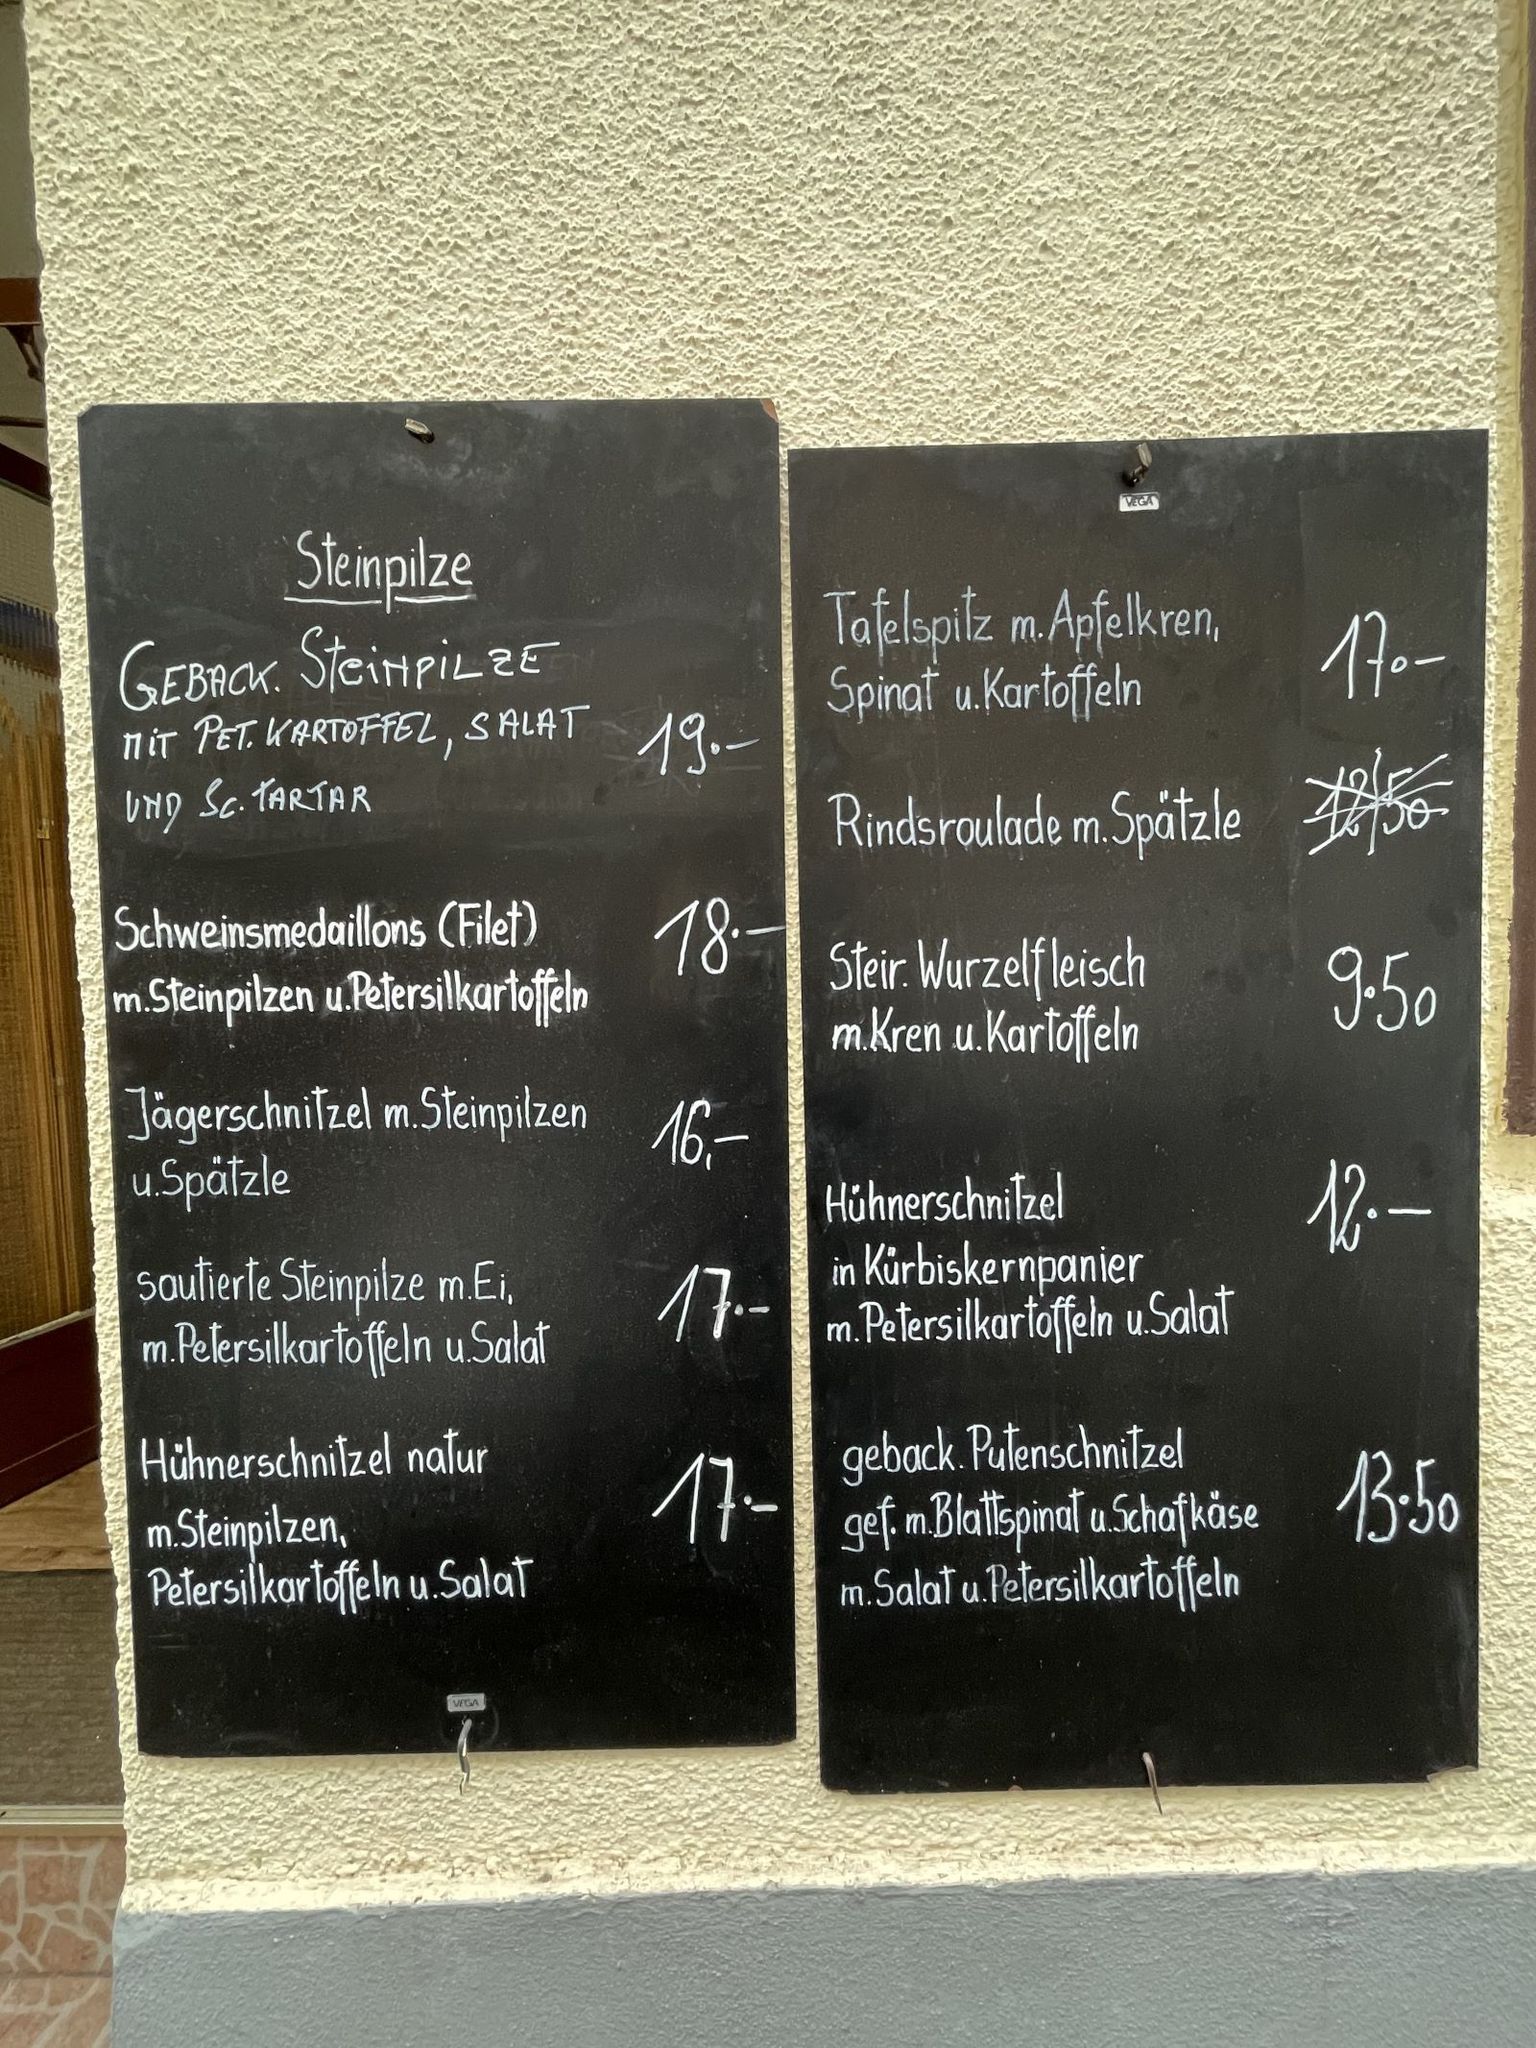 Steinpilze
GEBACK. STEINPILZE
MIT PET. KARTOFFEL, SALAT 19.-
UND SC. TARTAR
Schweinsmedaillons (Filet) 18.-
m. Steinpilzen u. Petersilkartoffeln
Jägerschnitzel m. Steinpilzen 16,-
u. Spätzle
sautierte Steinpilze m. Ei, 17.-
m. Petersilkartoffeln u. Salat
Hühnerschnitzel natur 17.-
m. Steinpilzen,
Petersilkartoffeln u. Salat
VEGA
VEGA
Tafelspitz m. Apfelkren, 17.-
Spinat u. Kartoffeln
Rindsroulade m. Spätzle 12/50
Steir. Wurzelfleisch 9.50
m. Kren u. Kartoffeln
Hühnerschnitzel 12.-
in Kürbiskernpanier
m. Petersilkartoffeln u. Salat
geback. Putenschnitzel
gef. m. Blattspinat u. Schafkäse 13.50
m. Salat u. Petersilkartoffeln